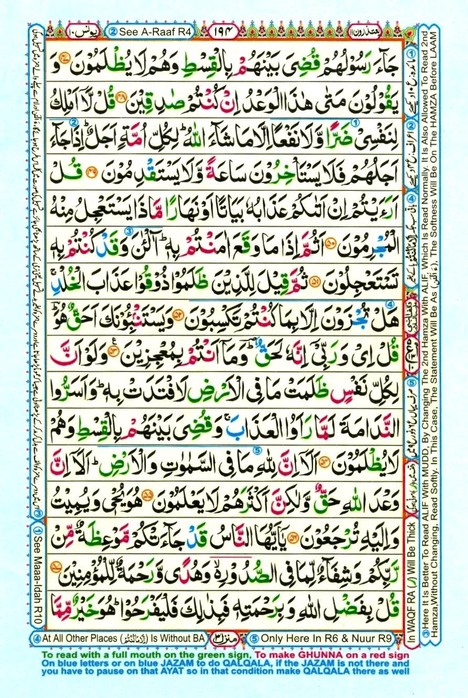 یونس ۱۰
② See A-Raaf R4
۱۹۴
یعتذرون ۱۱
جَآءَ رَسُوْلُهُمْ قُضِیَ بَیْنَهُمْ بِالْقِسْطِ وَهُمْ لَا یُظْلَمُوْنَ ۴۷ وَ
یَقُوْلُوْنَ مَتٰی هٰذَا الْوَعْدُ اِنْ كُنْتُمْ صٰدِقِیْنَ ۴۸ قُلْ لَّاۤ اَمْلِكُ
لِنَفْسِیْ ضَرًّا وَّلَا نَفْعًا اِلَّا مَا شَآءَ اللّٰهُ ؕ لِكُلِّ اُمَّةٍ اَجَلٌ ؕ اِذَا جَآءَ
اَجَلُهُمْ فَلَا یَسْتَاْخِرُوْنَ سَاعَةً وَّلَا یَسْتَقْدِمُوْنَ ۴۹ قُلْ
اَرَءَیْتُمْ اِنْ اَتٰىكُمْ عَذَابُهٗ بَیَاتًا اَوْ نَهَارًا مَّاذَا یَسْتَعْجِلُ مِنْهُ
الْمُجْرِمُوْنَ ۵۰ اَثُمَّ اِذَا مَا وَقَعَ اٰمَنْتُمْ بِهٖ ؕ آٰلْـٰٔنَ وَقَدْ كُنْتُمْ بِهٖ
تَسْتَعْجِلُوْنَ ۵۱ ثُمَّ قِیْلَ لِلَّذِیْنَ ظَلَمُوْا ذُوْقُوْا عَذَابَ الْخُلْدِ ۚ
هَلْ تُجْزَوْنَ اِلَّا بِمَا كُنْتُمْ تَكْسِبُوْنَ ۵۲ وَیَسْتَنْۢبِـُٔوْنَكَ اَحَقٌّ هُوَ ؔؕ
قُلْ اِیْ وَرَبِّیْۤ اِنَّهٗ لَحَقٌّ ؔؕ وَمَاۤ اَنْتُمْ بِمُعْجِزِیْنَ ۵۳ وَلَوْ اَنَّ
لِكُلِّ نَفْسٍ ظَلَمَتْ مَا فِی الْاَرْضِ لَافْتَدَتْ بِهٖ ؕ وَاَسَرُّوا
النَّدَامَةَ لَمَّا رَاَوُا الْعَذَابَ ۚ وَقُضِیَ بَیْنَهُمْ بِالْقِسْطِ وَهُمْ
لَا یُظْلَمُوْنَ ۵۴ اَلَاۤ اِنَّ لِلّٰهِ مَا فِی السَّمٰوٰتِ وَالْاَرْضِ ؕ اَلَاۤ اِنَّ
وَعْدَ اللّٰهِ حَقٌّ وَّلٰكِنَّ اَكْثَرَهُمْ لَا یَعْلَمُوْنَ ۵۵ هُوَ یُحْیٖ وَیُمِیْتُ
وَاِلَیْهِ تُرْجَعُوْنَ ۵۶ یٰۤاَیُّهَا النَّاسُ قَدْ جَآءَتْكُمْ مَّوْعِظَةٌ مِّنْ
رَّبِّكُمْ وَشِفَآءٌ لِّمَا فِی الصُّدُوْرِ ۙ۬ وَهُدًی وَّرَحْمَةٌ لِّلْمُؤْمِنِیْنَ ۵۷
قُلْ بِفَضْلِ اللّٰهِ وَبِرَحْمَتِهٖ فَبِذٰلِكَ فَلْیَفْرَحُوْا ؕ هُوَ خَیْرٌ مِّمَّا
① See Maaa-Idah R10
In WAQF RA (ر) Will Be Thick
③ Here It Is Better To Read ALIF With MUDD, By Changing The 2nd Hamza With ALIF, Which Is Read Normally. It Is Also Allowed To Read 2nd
Hamza, Without Changing, Read Softly. In This Case, The Statement Will Be As, The Softness Will Be On The HAMZA Before LAAM
④ At All Other Places Is Without BA
منزل ۳
⑤ Only Here In R6 & Nuur R9
To read with a full mouth on the green sign, To make GHUNNA on a red sign
On blue letters or on blue JAZAM to do QALQALA, if the JAZAM is not there and
you have to pause on that AYAT so in that condition make QALQALA there as well